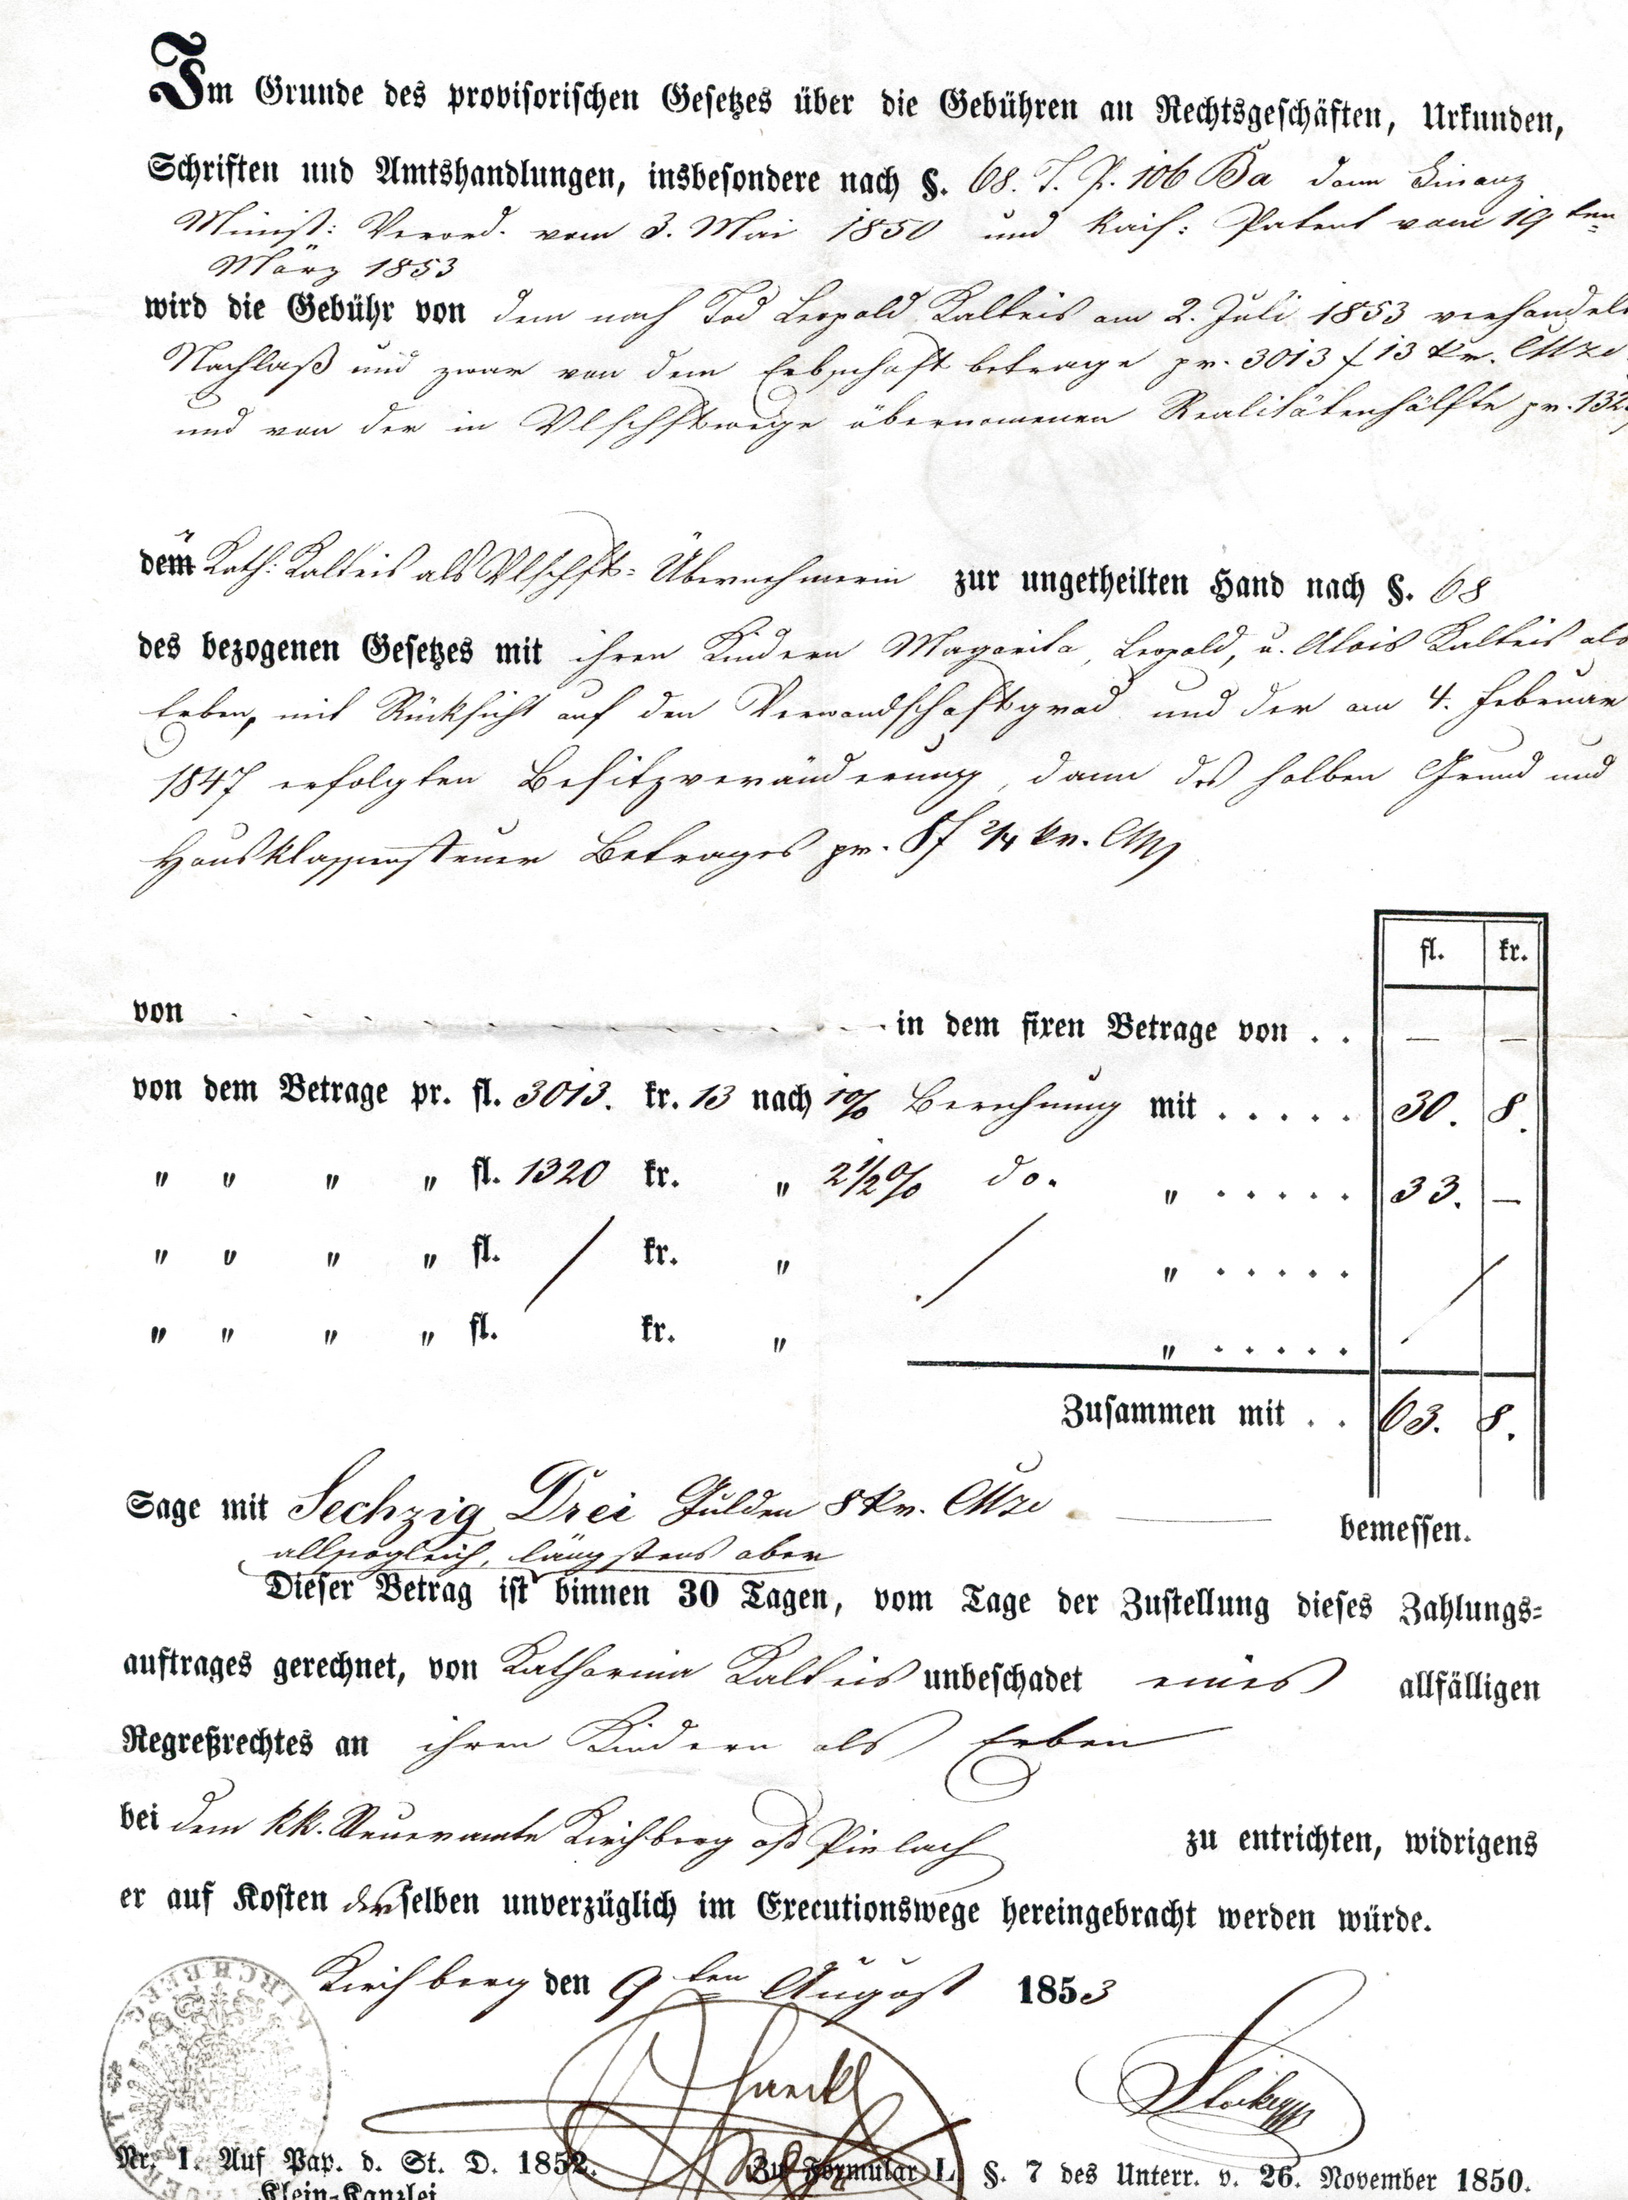 Im Grunde des provisorischen Gesetzes über die Gebühren an Rechtsgeschäften, Urkunden,
Schriften und Amtshandlungen, insbesondere nach §. 68. T. P. 106 Ba dann Finanz
Minist: Verord. vom 3. Mai 1850 und kais: Patent vom 19ten
März 1853
wird die Gebühr von dem nach Tod Leopold Kalteis am 2. Juli 1853 verhandel
Nachlaß und zwar von dem Erbschaftbetrage pr. 3013 f 13 kr. CMze
und von der in Wege übernomenen Realitätenhälfte pr. 132
dem Kath: Kalteis als Übernehmerin zur ungetheilten Hand nach §. 68
des bezogenen Gesetzes mit ihren Kindern Magarita, Leopold, u. Alois Kalteis als
Erben, mit Rücksicht auf den Verwandschaftsgrad und der am 4. Februar
1847 erfolgten Besitzveränderung, dann des halben Grund und
Hausklassensteuer Betrages pr. 8f 2/4 kr. CMz
fl. kr.
von in dem fixen Betrage von . . — —
von dem Betrage pr. fl. 3013. kr. 13 nach 1% Berechnung mit . . . . . 30. 8.
" " " " fl. 1320 kr. " 2½% do. " . . . . . 33. —
" " " " fl. / kr. " / " . . . . . /
" " " " fl. kr. " " . . . . .
Zusammen mit . . 63. 8.
Sage mit Sechzig Drei Gulden 8 kr. CMze bemessen.
allsogleich, längstens aber
Dieser Betrag ist binnen 30 Tagen, vom Tage der Zustellung dieses Zahlungs-
auftrages gerechnet, von Katharina Kalteis unbeschadet eines allfälligen
Regreßrechtes an ihren Kindern als Erben
bei dem kk. Steueramte Kirchberg a/d Pielach zu entrichten, widrigens
er auf Kosten derselben unverzüglich im Executionswege hereingebracht werden würde.
Kirchberg den 9ten August 1853
Nr. 1. Auf Pap. d. St. D. 1852. Zu Formular I. §. 7 des Unterr. v. 26. November 1850.
Klein-Kanzlei
KIRCHBERG